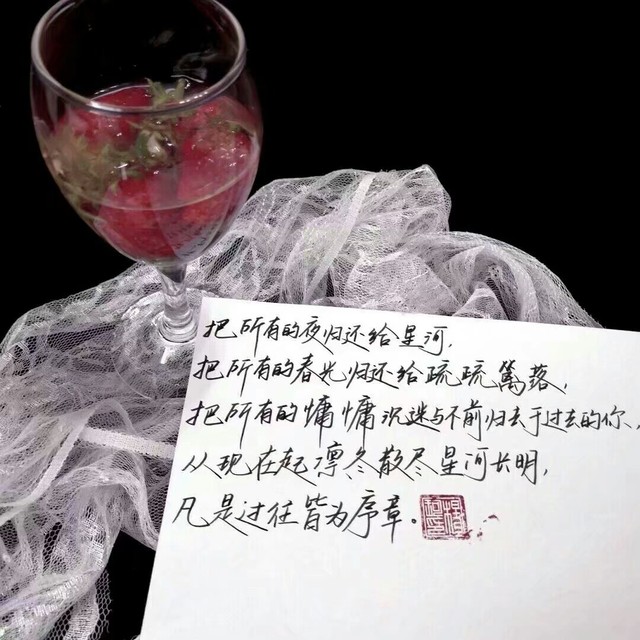 把所有的夜归还给星河,
把所有的春光归还给疏疏篱落,
把所有的慵慵沉迷与不前归去于过去的你、
从现在起凛冬散尽星河长明,
凡是过往皆为序章。